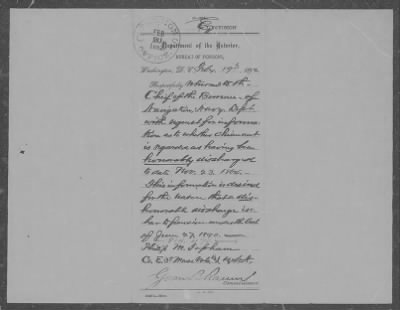 Division
FEB
Department of the Interior,
BUREAU OF PENSIONS,
Washington, D. C. Feby. 19th, 189
Respectfully returned to the
Chief of the Bureau of
Navigation, Navy Dept.
with request for informa-
tion as to whether claimant
is regarded as having been
honorably discharged
to date Nov. 23.
This information is desired
for the reason that a dis-
honorable discharge is a
bar to pension under the Act
of June 27, 1890.
M. Topham
Co. E. Mass. Vols.
Green B. Raum
Commissioner.